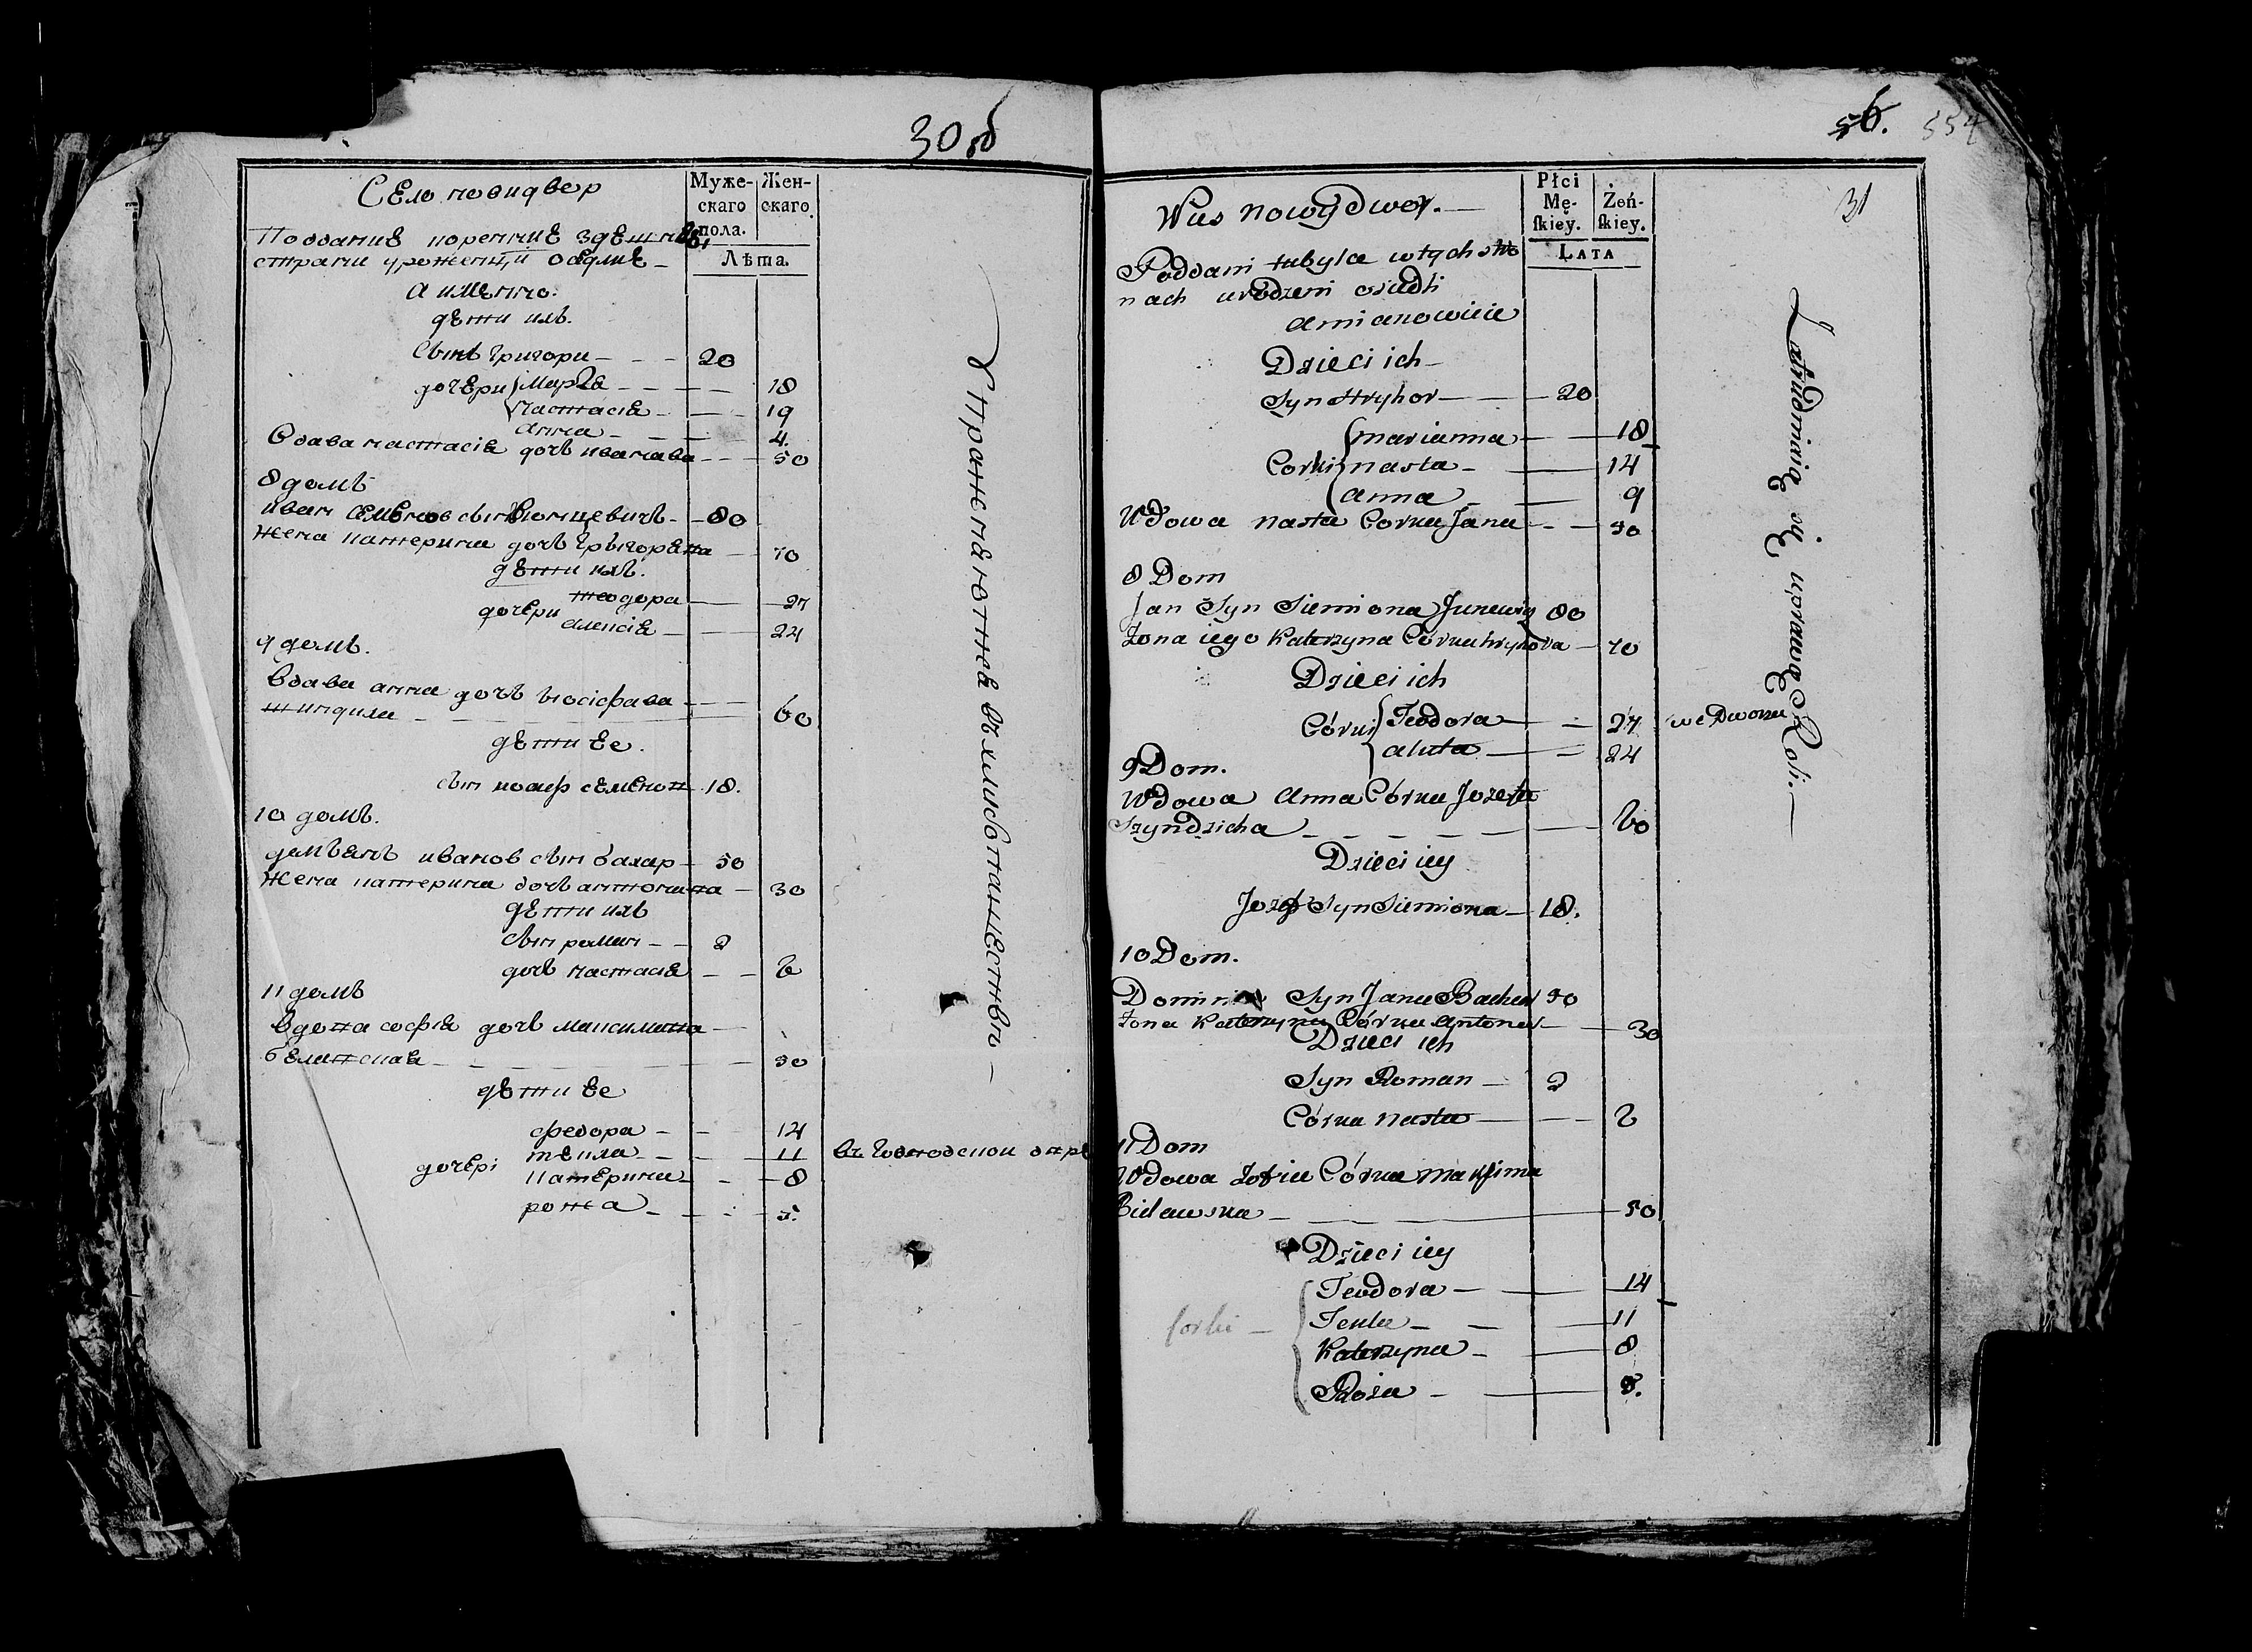 30 об
Село новидвер
Муже-
скаго
пола.
Жен-
скаго
Лѣта.
Подданне коренние здешни
страни уроженци оседлие
а именно.
дети ихъ.
Синъ Григори - - - 20
дочери Марта - - - 18
Настасіа - - - 19
Анна - - - 4.
Вдава настасіа дочъ иванава - - - 50
8 домъ
иван семенов син - 80
Жена катерина дочъ - 70
дети ихъ.
дочери теодора - 27
алексіа - 24
9 домъ.
Вдава анна дочъ иосифава - - -
шиндила - - - 60
дети ее.
син иосиф семенов 18.
10 домъ.
иванов син бахар - 50
Жена катерина дочъ антонива - 30
дети ихъ
син раман - - 2
дочъ настасіа - - 6
11 домъ
Вдова софіа дочъ максимава -
белавскаа - - - 50
дети ее
дочері федора - - 14
текла - - - 11
катерина - - 8
рожа - - - 5.
Упражнаютца въ хлибопашестви -
56. 554
31
Wies nowydwor. -
Płci
Mę-
skiey.
Żeń-
skiey.
Lata
Poddani tubylce wtych stro
nach urodzeni osiedli
amianowicie
Dzieci ich -
Syn Hryhor - - - 20
Corki marianna - - 18
nasta - - 14
anna - - 9
Wdowa nasta Corka Jana - - - 50
8 Dom
Jan Syn Siemiona Juncwicz 80
Zona iego Katerzyna Córka hryhora - 70
Dzieci ich
Córki Teodora - - 27 we Dworze
aluta - - 24
9 Dom.
Wdowa Anna Córka Jozefa
Szyndzicha - - - - - 60
Dzieci iey
Jozef Syn Siemiona - 18.
10 Dom.
Syn Jana Bachar 50
Zona Katerzyna Córka Antona - - 30
Dzieci ich
Syn Roman - 2
Córka Nasta - - - 6
11 Dom
Wdowa Zofia Córka maksima
Bielawska - - - 50
Dzieci iey
Corki - Teodora - - 14
Tekla - - - 11
Katerzyna - - 8
Roza - - 5.
Zatrudniaią się uprawą Roli. -